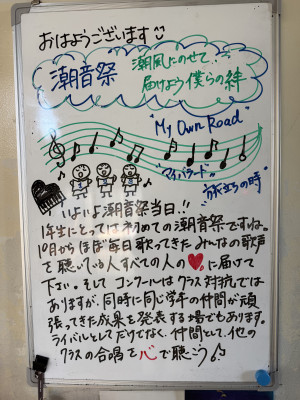 おはようございます
潮音祭
潮風にのせて、
届けよう僕らの絆
"My Own Road"
"マイバラード"
"旅立ちの時"
いよいよ潮音祭当日!!
1年生にとっては初めての潮音祭ですね。
10月からほぼ毎日歌ってきたみんなの歌声
を聴いている人すべての人の♥に届けて
下さい。そして コンクールはクラス対抗では
ありますが、同時に同じ学年の仲間が頑
張ってきた成果を発表する場でもあります。
ライバルとしてだけでなく、仲間として、他の
クラスの合唱を心で聴こう♪